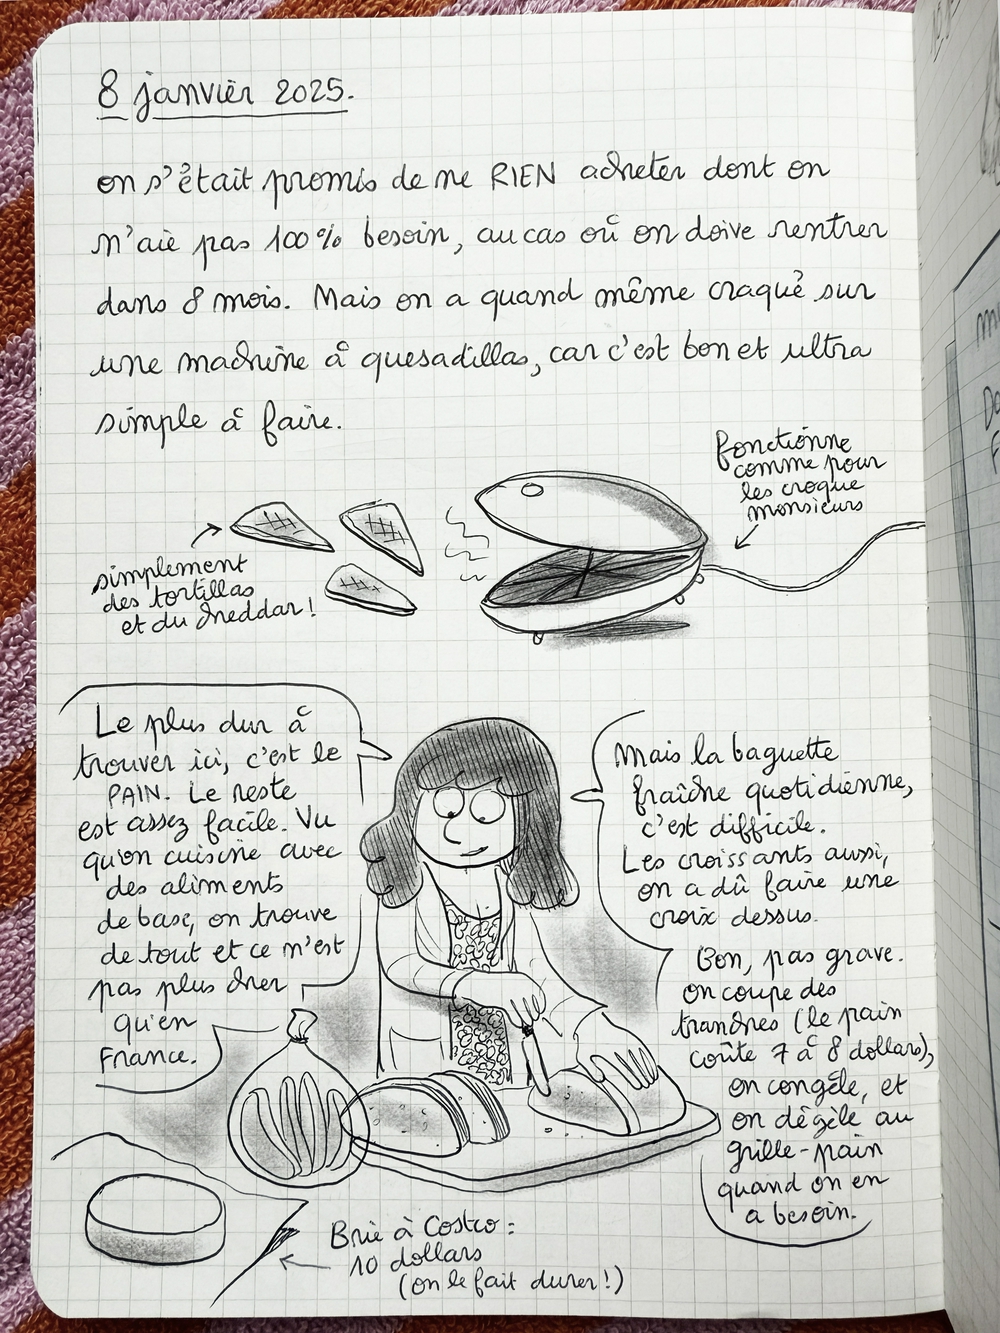 8 janvier 2025.
on s'était promis de ne RIEN acheter dont on
n'aie pas 100% besoin, au cas où on doive rentrer
dans 8 mois. Mais on a quand même craqué sur
une machine à quesadillas, car c'est bon et ultra
simple à faire.
fonctionne
comme pour
les croque
monsieurs
simplement
des tortillas
et du cheddar!
Le plus dur à
trouver ici, c'est le
PAIN. Le reste
est assez facile. Vu
qu'on cuisine avec
des aliments
de base, on trouve
de tout et ce n'est
pas plus cher
qu'en
France.
Mais la baguette
fraîche quotidienne,
c'est difficile.
Les croissants aussi,
on a dû faire une
croix dessus.
Bon, pas grave.
on coupe des
tranches (le pain
coûte 7 à 8 dollars),
on congèle, et
on dégèle au
grille-pain
quand on en
a besoin.
Brie à Costco :
10 dollars
(on le fait durer!)